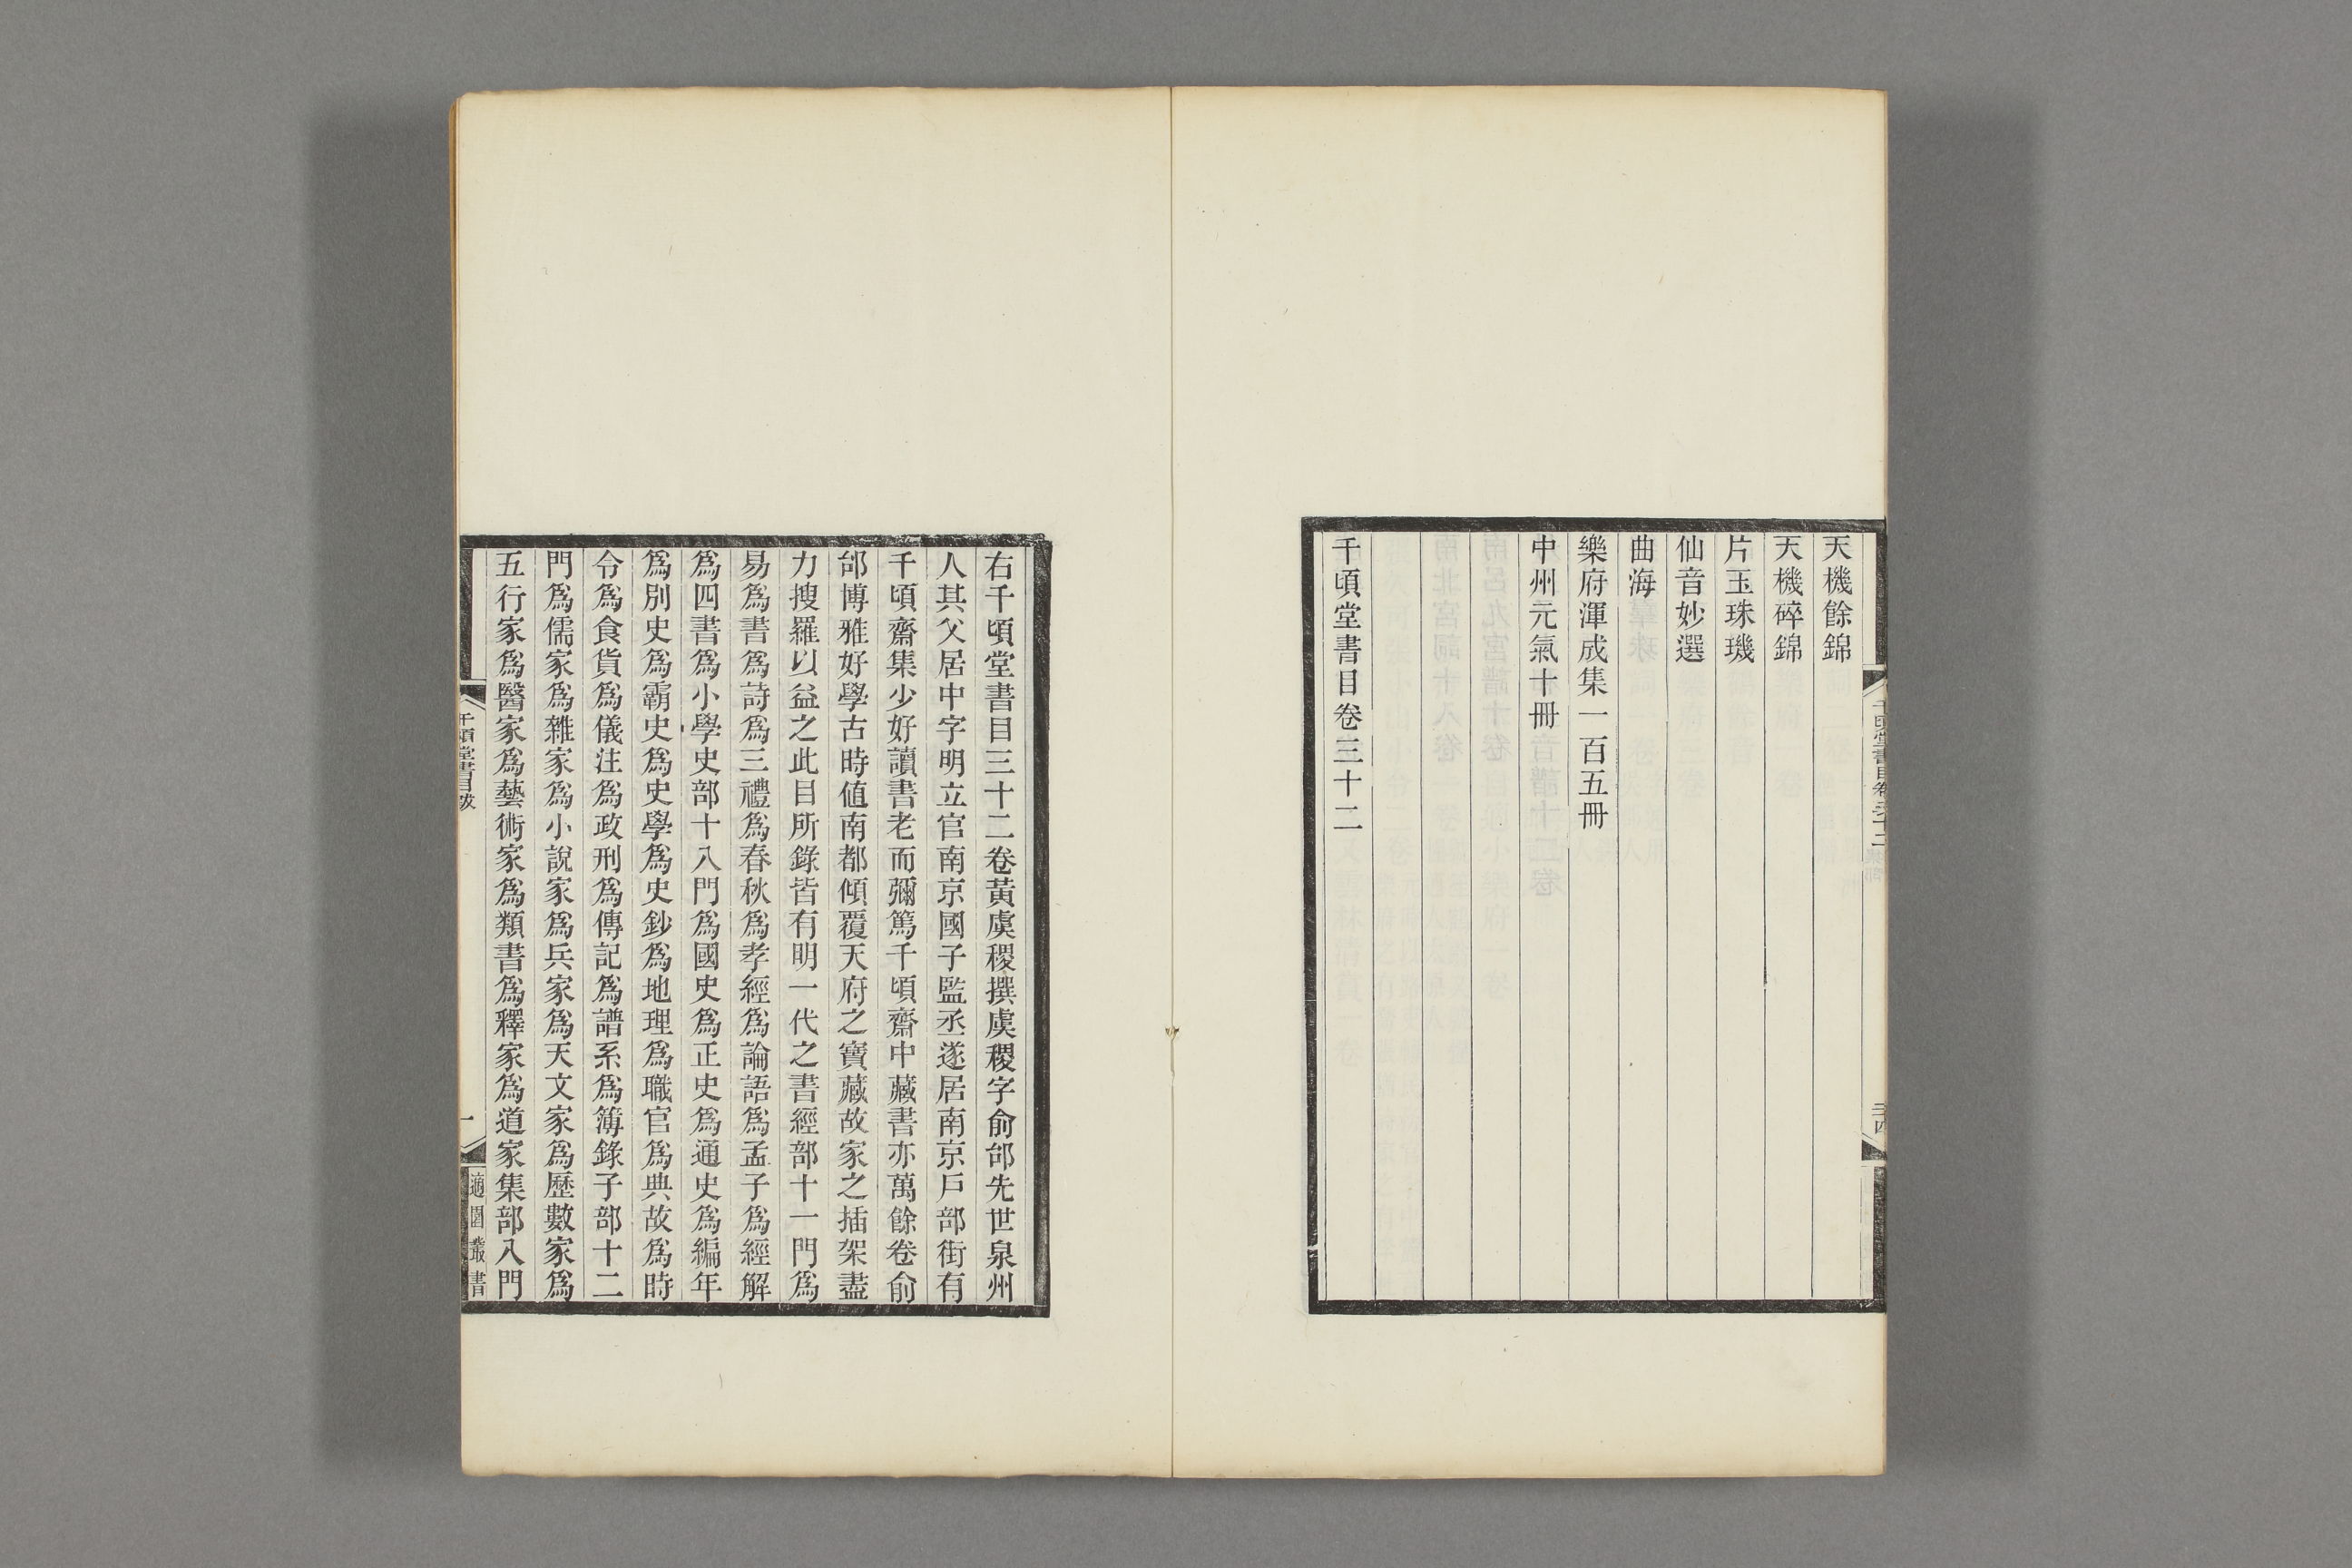 天機餘錦
天機碎錦
片玉珠璣
仙音妙選
曲海
樂府渾成集一百五冊
中州元氣十冊
千頃堂書目卷三十二
右千頃堂書目三十二卷黃虞稷撰虞稷字俞邰先世泉州
人其父居中字明立官南京國子監丞遂居南京戶部街有
千頃齋集少好讀書老而彌篤千頃齋中藏書亦萬餘卷俞
邰博雅好學古時値南都傾覆天府之寶藏故家之插架盡
力搜羅以益之此目所錄皆有明一代之書經部十一門爲
易爲書爲詩爲三禮爲春秋爲孝經爲論語爲孟子爲經解
爲四書爲小學史部十八門爲國史爲正史爲通史爲編年
爲別史爲霸史爲史學爲史鈔爲地理爲職官爲典故爲時
令爲食貨爲儀注爲政刑爲傳記爲譜系爲簿錄子部十二
門爲儒家爲雜家爲小說家爲兵家爲天文家爲歷數家爲
五行家爲醫家爲藝術家爲類書爲釋家爲道家集部八門
千頃堂書目跋
一
適園叢書